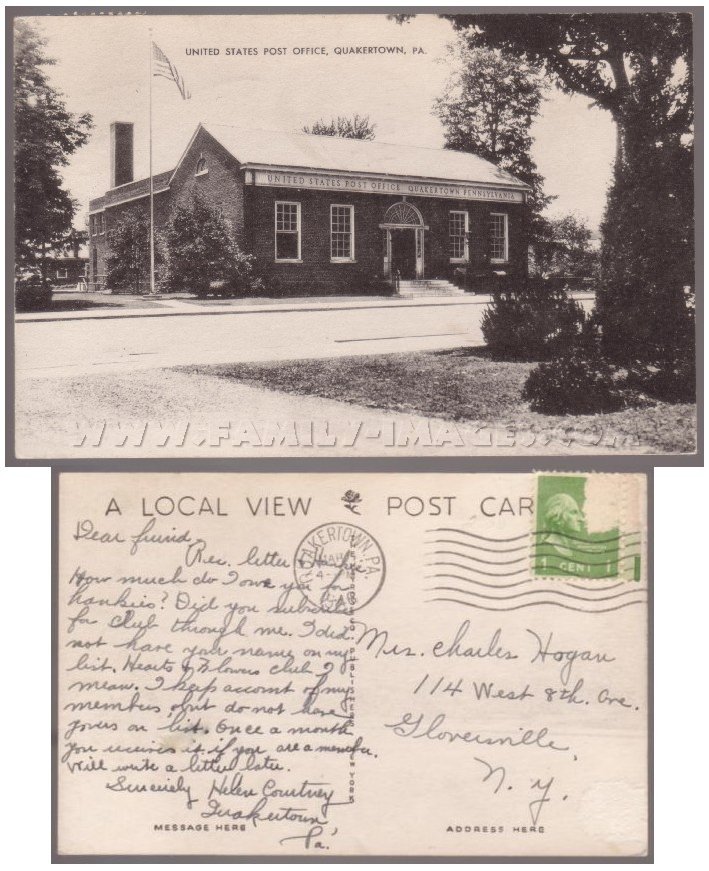 UNITED STATES POST OFFICE, QUAKERTOWN, PA.
UNITED STATES POST OFFICE QUAKERTOWN PENNSYLVANIA
WWW.FAMILY-IMAGES.COM
A LOCAL VIEW POST CAR
Dear friend,
Rec. letter
How much do I owe you for
hankies? Did you subscribe
for Club through me. I did
not have your name on my
list. Hearts & Flowers club I
mean. I keep account of my
members but do not have
yours on list. Once a month
you receive it if you are a member.
Will write a letter later.
Sincerely Helen Courtney
Quakertown
Pa.
MESSAGE HERE
QUAKERTOWN, PA.
PUBLISHERS NEW YORK
1 CENT 1
Mrs. Charles Hogan
114 West 8th. Ave.
Gloversville,
N. Y.
ADDRESS HERE